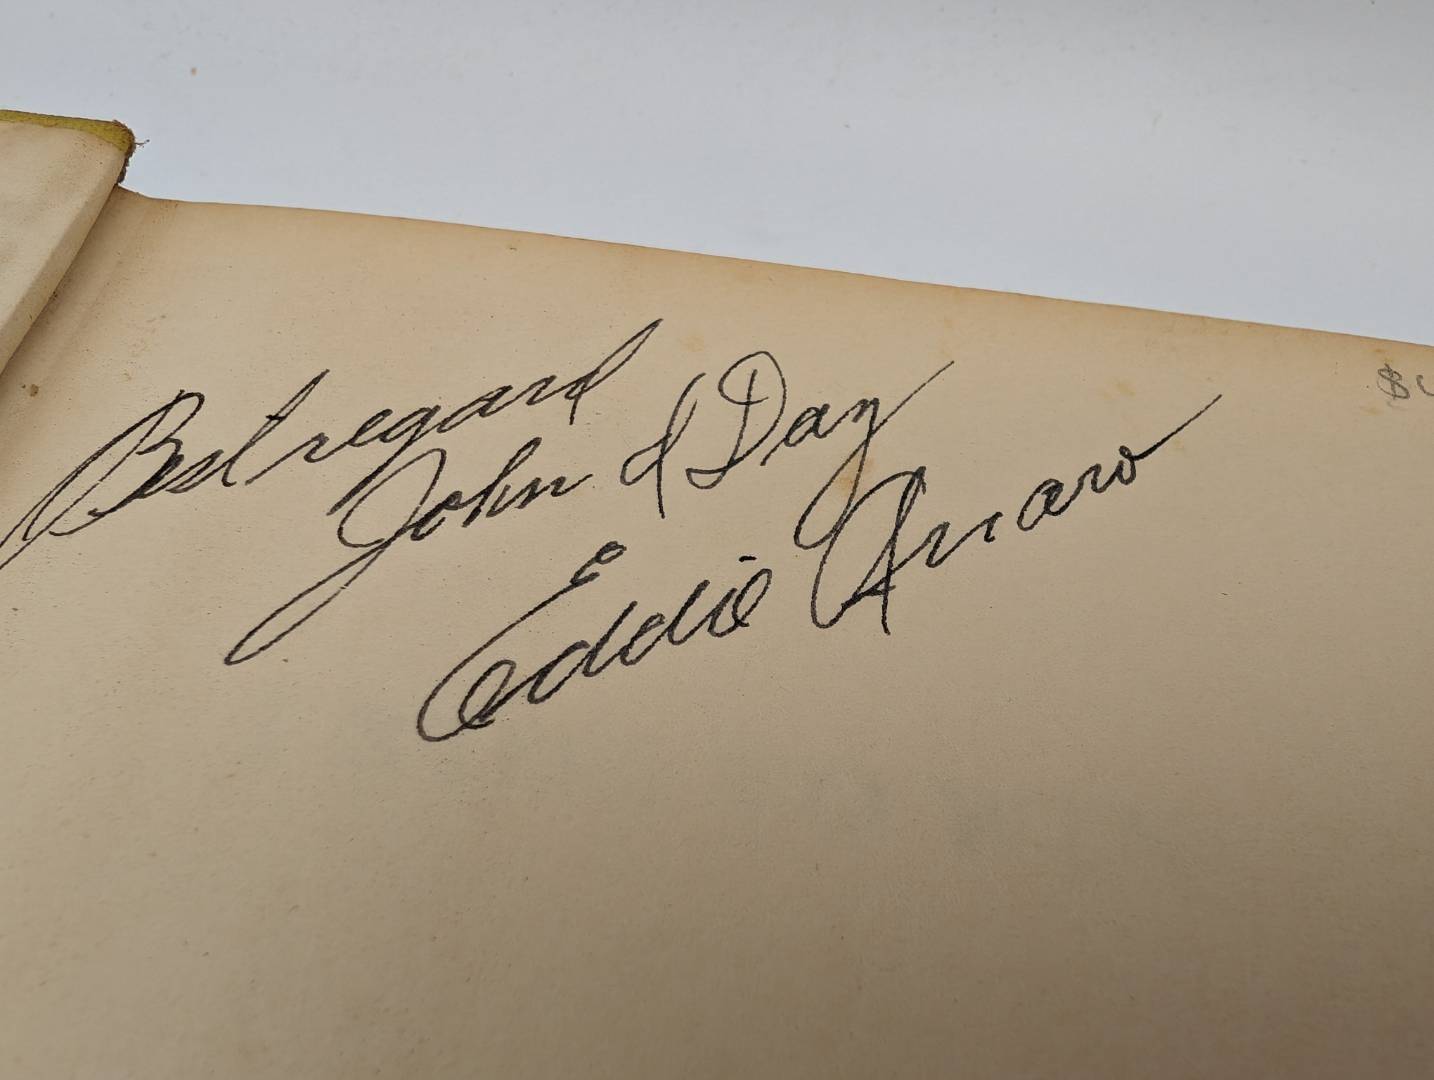 Best regard
John & Day
Eddie Arcaro
$